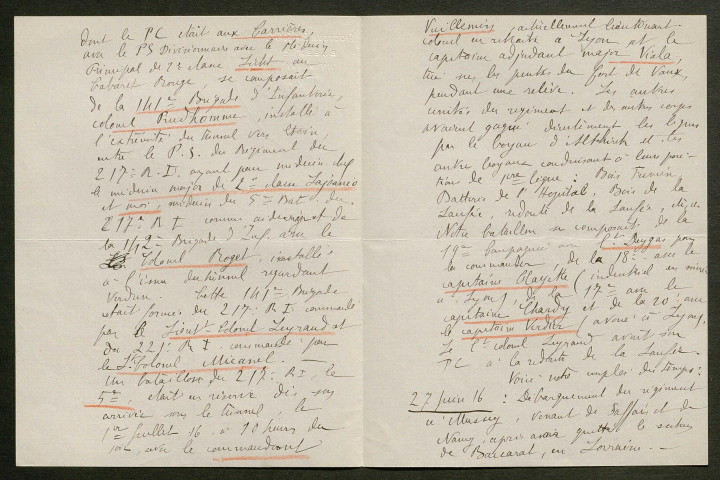 dont le PC était aux Carrières,
avec le PS Divisionnaire avec le Médecin
Principal de 2e classe Liebt au
Cabaret Rouge se composait
de la 141e Brigade d'Infanterie,
colonel Prudhomme, installé à
l'extrémité du tunnel vers Etain,
outre le P.S. du Régiment du
217e R.I. ayant pour médecin chef
le médecin major de 2e classe
et moi, médecin du 5e Bat. du
217e R I comme et de
la 142e Brigade d'Inf. avec le
Colonel Roget, installés
à l'issue du tunnel regardant
Verdun. Cette 141e Brigade
était formée du 217e R I commandé
par le Lieut-Colonel Legrand et
du 221e R I commandé par
le Lt Colonel Micanel. —
Un bataillon du 217e RI, le
5e, était en réserve dès son
arrivée sous le tunnel, le
1er Juillet 16, à 10 heures du
soir, avec le commandant
Vuillemin actuellement lieutenant-
colonel en retraite à Lyon et le
capitaine adjudant major Viala,
tué sur les pentes du fort de Vaux,
pendant une relève. Les autres
unités du régiment et des autres corps
avaient gagné directement les lignes
par le boyau d'Altkirch et les
autres boyaux conduisant à leurs posi-
tion de 1re ligne : Bois Fumin
Batterie de l'Hopital, Bois de la
Laufée, redoute de la Laufée, etc.
Notre bataillon se composait de la
19e Compagnie avec Lt Duygas pour
la commander de la 18e avec le
capitaine Clayette (industriel en
à Lyon), de la 17e avec le
capitaine Chardy et de la 20e avec
le capitaine Verdier (avoué à Lyon).
Le Lt colonel Legrand avait son
PC à la redoute de la Laufée.
Voici notre emploi du temps :
27 Juin 16 : Débarquement du régiment
à Mussey, venant de Saffais et de
Nancy, après avoir quitté le secteur
de Baccarat, en Lorraine. —